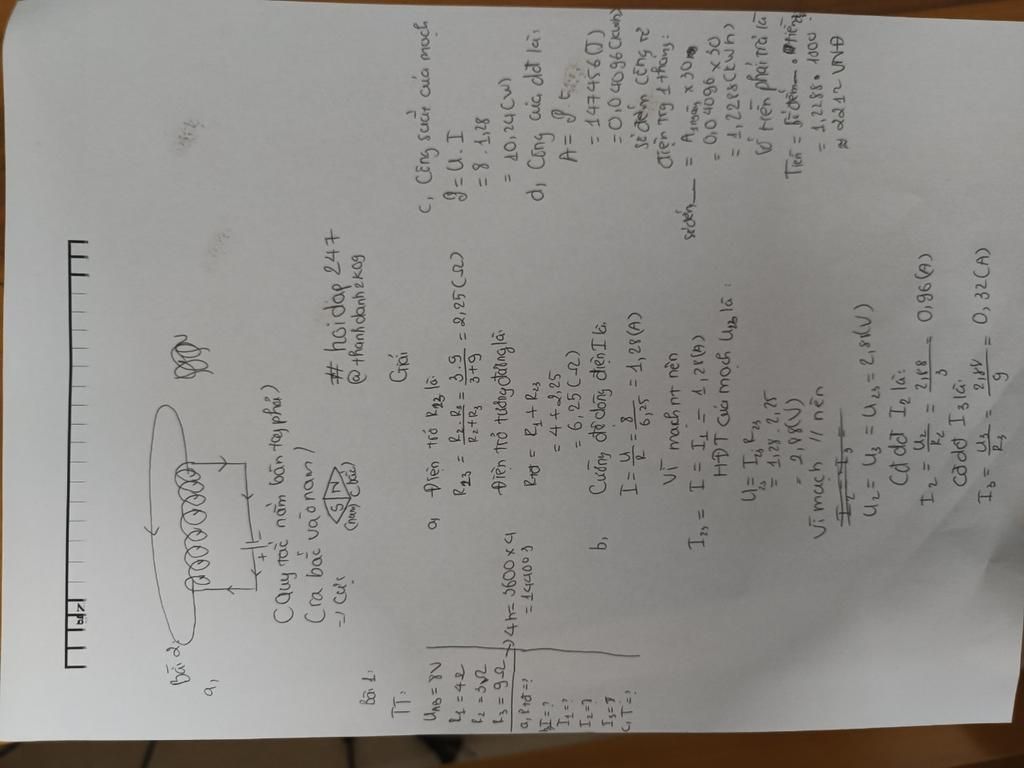 Bài 2:
a,
+
N
(Quy tắc nắm bàn tay phải)
(ra bắc vào nam)
=> Cực
S N
(nam) (bắc)
# hoidap247
@thanhdanh2k09
Bài 1:
TT:
UAB = 8V
R1 = 4Ω
R2 = 3Ω
R3 = 9Ω
a, Rtđ = ?
b, I = ?
I1 = ?
I2 = ?
I3 = ?
c, T = ?
4h = 3600 x 4
= 14400 s
Giải
a, Điện trở R23 là:
R23 = R2 . R3 / R2 + R3 = 3 . 9 / 3 + 9 = 2,25 (Ω)
Điện trở tương đương là:
Rtđ = R1 + R23
= 4 + 2,25
= 6,25 (Ω)
b, Cường độ dòng điện I là:
I = U / R = 8 / 6,25 = 1,28 (A)
Vì mạch nt nên
I23 = I = I1 = 1,28 (A)
HĐT của mạch U23 là:
U23 = I23 . R23
= 1,28 . 2,25
= 2,88 (V)
Vì mạch // nên
I2 = I3 =
U2 = U3 = U23 = 2,88 (V)
Cđdđ I2 là:
I2 = U2 / R2 = 2,88 / 3 = 0,96 (A)
Cđdđ I3 là:
I3 = U3 / R3 = 2,88 / 9 = 0,32 (A)
c, Công suất của mạch
P = U . I
= 8 . 1,28
= 10,24 (W)
d, Công của dđ là:
A = P . t
= 147456 (J)
= 0,04096 (kWh)
Số đếm công tơ
điện trg 1 tháng:
Số đếm = A1 ngày x 30
= 0,04096 x 30
= 1,2288 (kWh)
Số tiền phải trả là
Tiền = Số đếm . tiền
= 1,2288 . 1800
≈ 2212 VNĐ